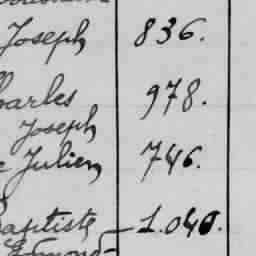 Joseph 836.
Charles 978.
Joseph
Julien 746.
Baptiste 1.040.
Edmond